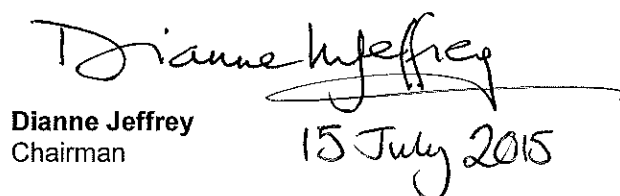 Dianne M Jeffrey
Dianne Jeffrey
Chairman
15 July 2015